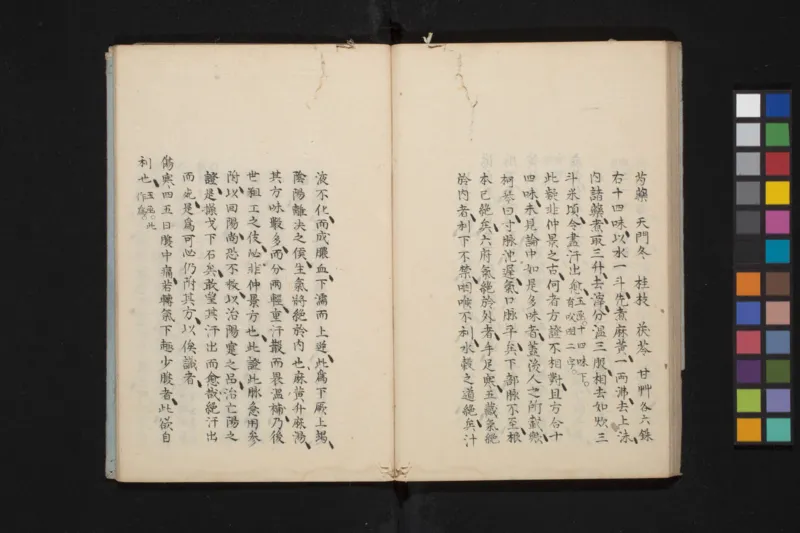 芍藥 天門冬 桂枝 茯苓 甘艸各六銖
右十四味以水一斗先煮麻黄一兩沸去上沫
内諸藥煮取三升去滓分温三服相去如炊三
斗米頃令盡汗出愈玉函十四味有㕮咀二字
此類非仲景之古何者方證不相對且方合十
四味未見論中如是多味者蓋後人之所
柯琴曰寸脉沈遲氣口脉平矣下部脉不至根
本已絶矣六府氣絶於外者手足寒五藏氣絶
於内者利下不禁咽喉不利水穀之道絶矣汁
液不化而成膿血下濡而上逆此爲下厥上竭
陰陽離決之候生氣將絶於内也麻黄升麻湯
其方味數多而分兩輕重汗散而畏温補乃後
世粗工之伎必非仲景方也此證此脉急用參
附以回陽尚恐不救以治陽實之品治亡陽之
證是操戈下石矣敢望其汗出而愈哉絶汗出
而死是爲可必仍附其方以俟識者
傷寒四五日腹中痛若轉氣下趣少腹者此欲自
利也玉函此作爲